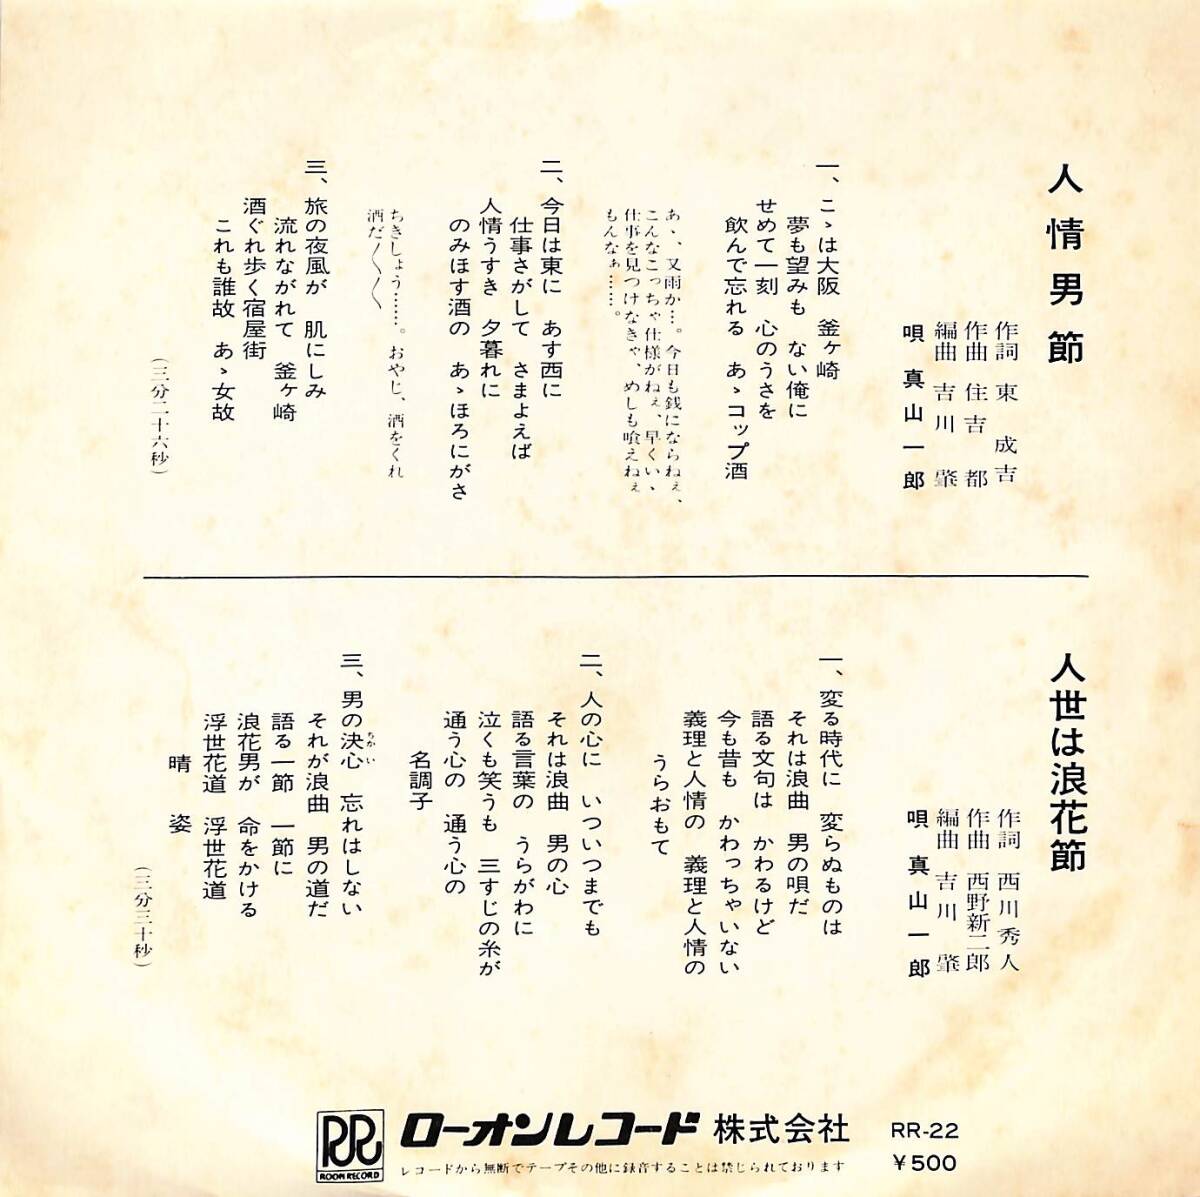 人情男節
作詞 東 成吉
作曲 住吉 都
編曲 吉川 肇
唄 真山一郎
一、こゝは大阪 釜ヶ崎
夢も望みも ない俺に
せめて一刻 心のうさを
飲んで忘れる あゝコップ酒
あゝ、又雨か…。今日も銭にならねぇ、
こんなこっちゃ仕様がねぇ、早くいゝ
仕事を見つけなきゃ、めしも喰えねぇ
もんなぁ……。
二、今日は東に あす西に
仕事さがして さまよえば
人情うすき 夕暮れに
のみほす酒の あゝほろにがさ
ちきしょう……。おやじ、酒をくれ
酒だ〳〵〳〵
三、旅の夜風が 肌にしみ
流れながれて 釜ヶ崎
酒ぐれ歩く宿屋街
これも誰故 あゝ女故
(三分二十六秒)
人世は浪花節
作詞 西川秀人
作曲 西野新二郎
編曲 吉川 肇
唄 真山一郎
一、変る時代に 変らぬものは
それは浪曲 男の唄だ
語る文句は かわるけど
今も昔も かわっちゃいない
義理と人情の 義理と人情の
うらおもて
二、人の心に いついつまでも
それは浪曲 男の心
語る言葉の うらがわに
泣くも笑うも 三すじの糸が
通う心の 通う心の
名調子
三、男の決心 忘れはしない
ちかい
それが浪曲 男の道だ
語る一節 一節に
浪花男が 命をかける
浮世花道 浮世花道
晴 姿
(三分三十秒)
ROON RECORD
ローオンレコード 株式会社
レコードから無断でテープその他に録音することは禁じられております
RR-22
¥500